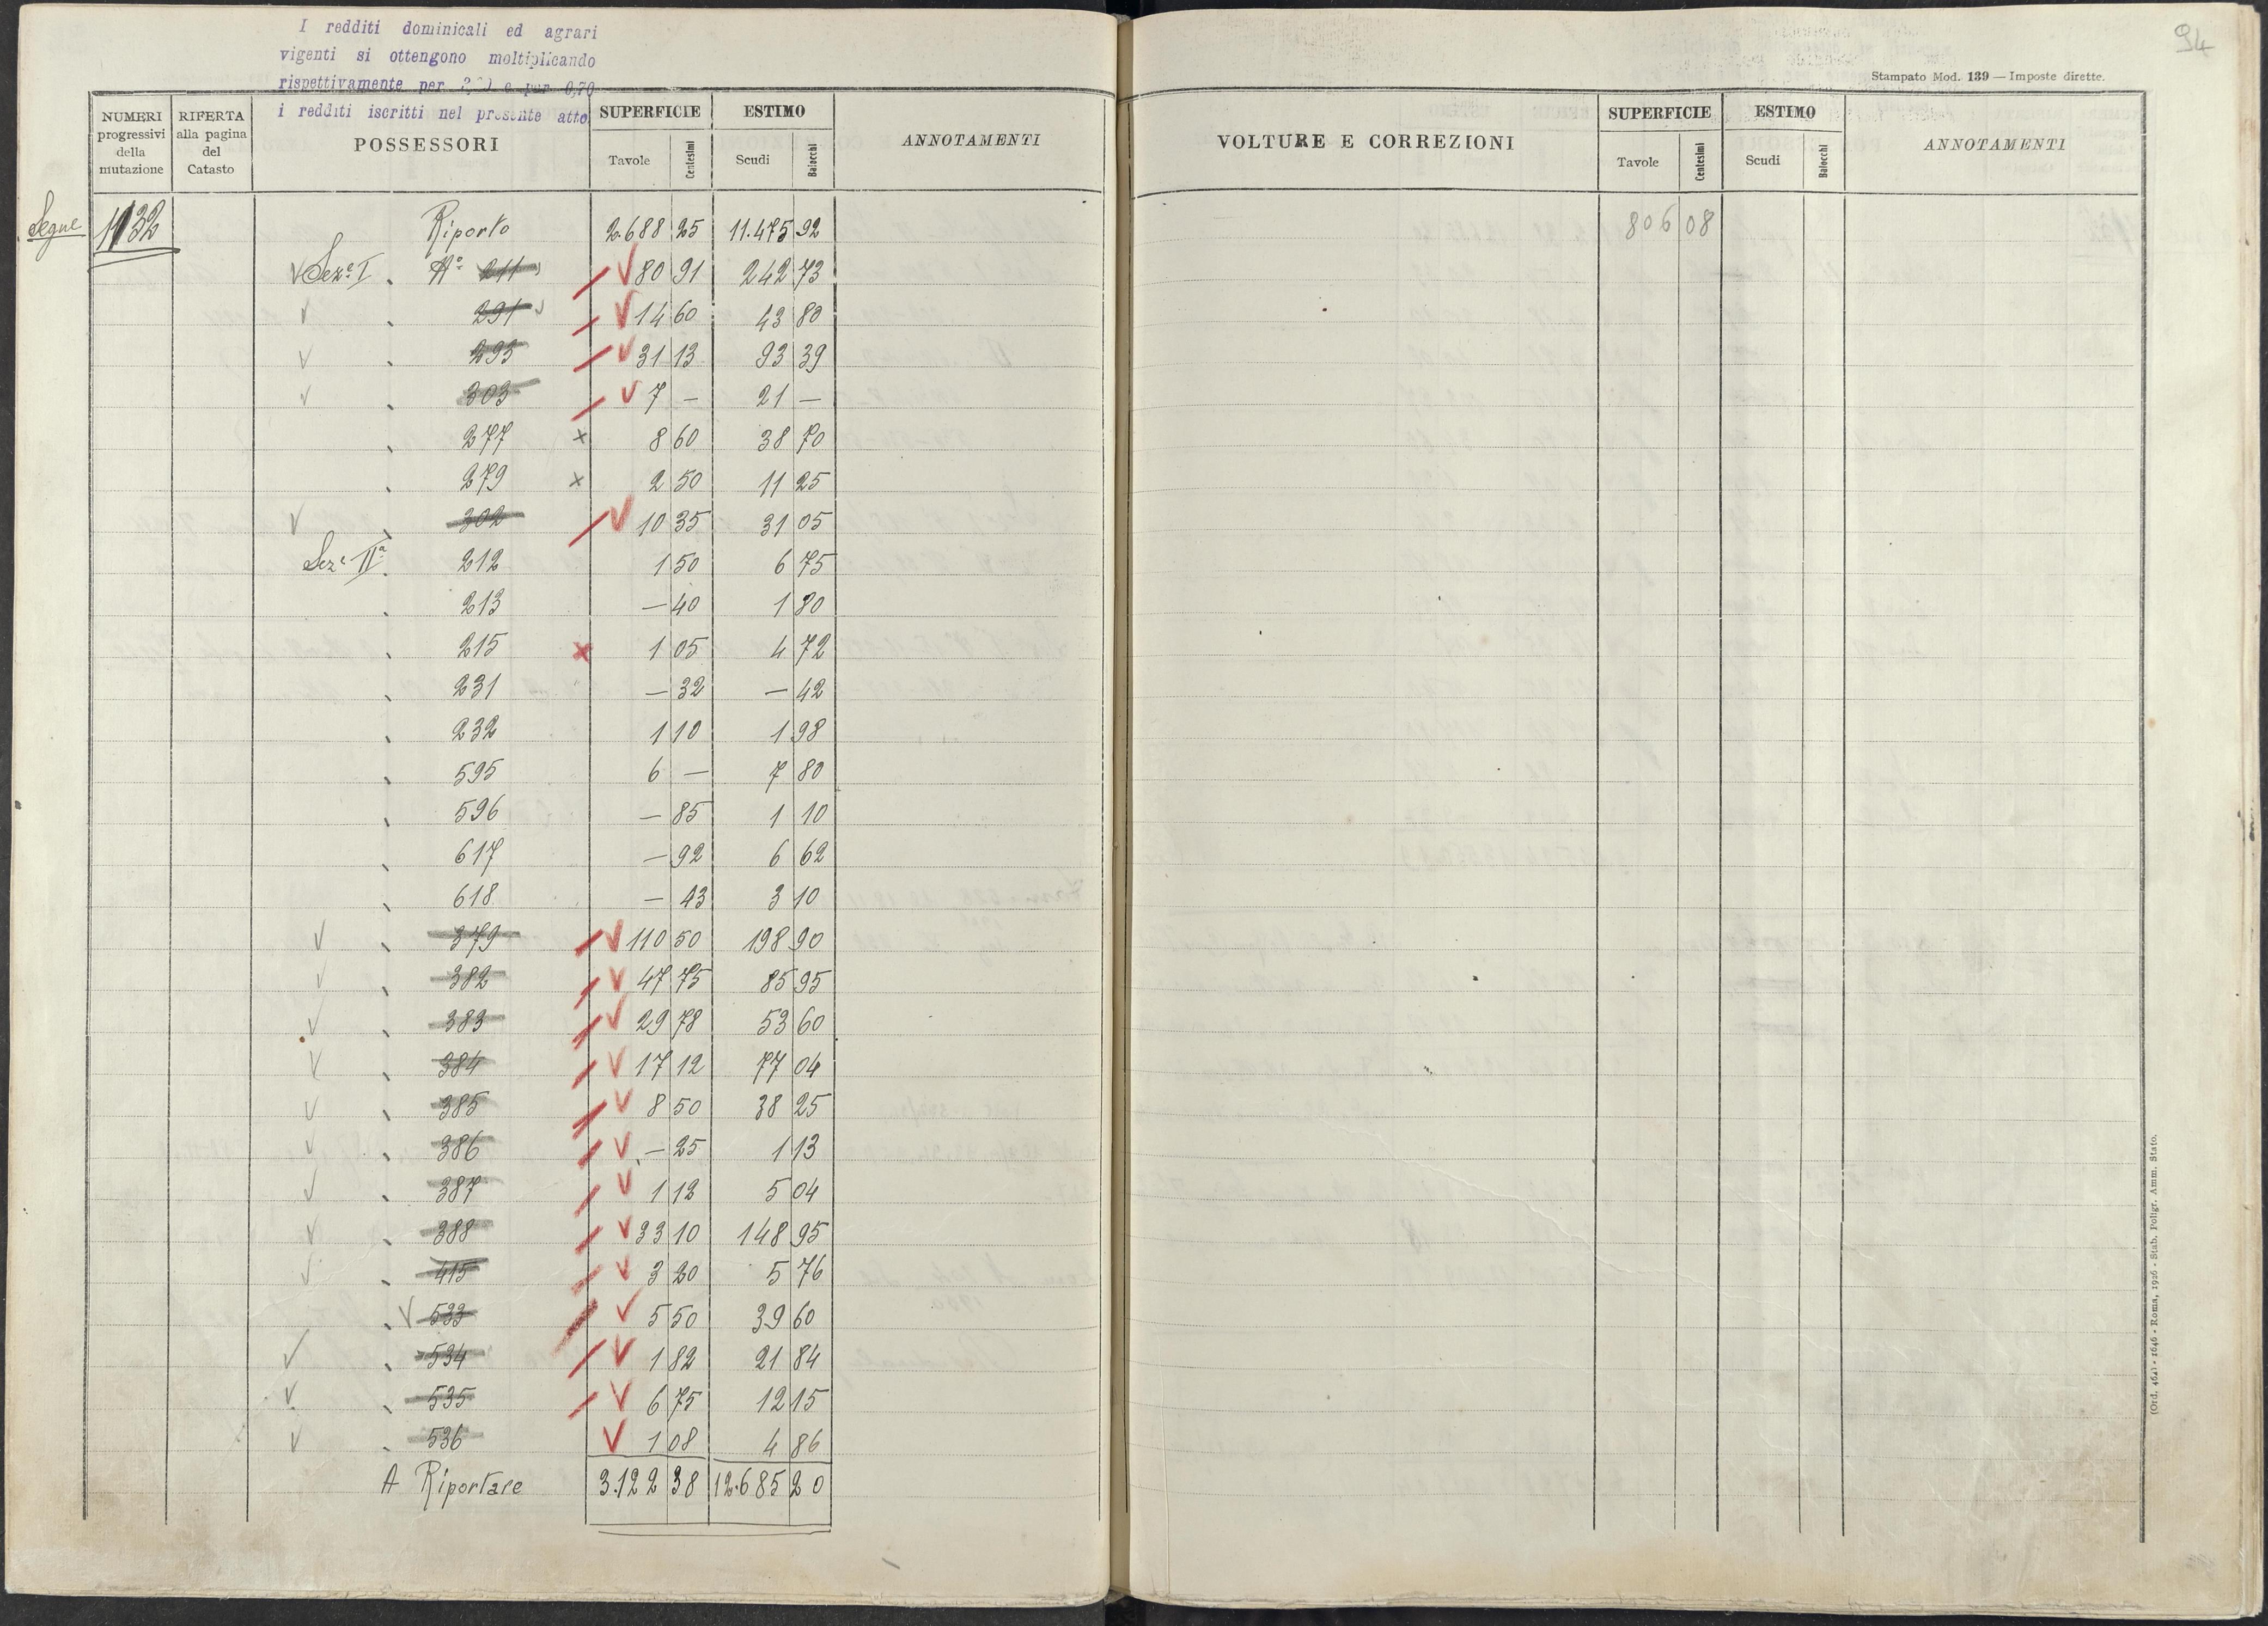 I redditi dominicali ed agrari
vigenti si ottengono moltiplicando
rispettivamente per e per 0,70
i redditi iscritti nel presente atto
NUMERI progressivi della mutazione
RIFERTA alla pagina del Catasto
POSSESSORI
SUPERFICIE
Tavole Centesimi
ESTIMO
Scudi Baiocchi
ANNOTAMENTI
Segue 1132 Riporto 2.688 25 11.475 92
Sez.e I N.o 211 80 91 242 73
291 14 60 43 80
293 31 13 93 39
303 7 — 21 —
277 x 8 60 38 70
279 x 2 50 11 25
302 10 35 31 05
Sez.e IIa 212 1 50 6 75
213 — 40 1 80
215 x 1 05 4 72
231 — 32 — 42
232 1 10 1 98
595 6 — 7 80
596 — 85 1 10
617 — 92 6 62
618 — 43 3 10
379 110 50 198 90
382 47 75 85 95
383 29 78 53 60
384 17 12 77 04
385 8 50 38 25
386 — 25 1 13
387 1 12 5 04
388 33 10 148 95
415 3 20 5 76
533 5 50 39 60
534 1 82 21 84
535 6 75 12 15
536 1 08 4 86
A Riportare 3.122 38 12.685 20
94
Stampato Mod. 139 — Imposte dirette.
VOLTURE E CORREZIONI
SUPERFICIE
Tavole Centesimi
ESTIMO
Scudi Baiocchi
ANNOTAMENTI
806 08
1646 - Roma, 1926 - Stab. Poligr. Amm. Stato.